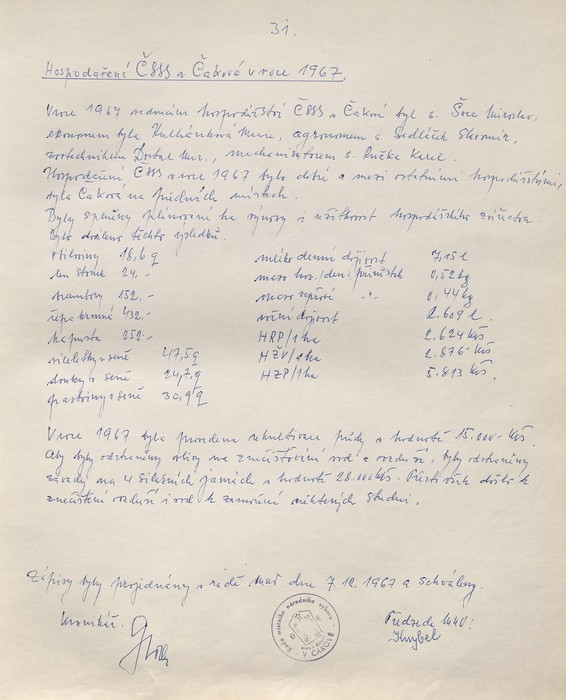 31.
Hospodaření ČSSS v Čakové v roce 1967.
V roce 1967 vedoucím hospodářství ČSSS v Čakové byl s. Švec Miroslav,
ekonomem byla Kulhánková Marie, agronomem s. Sedláček Slavomír,
zootechnikem Dostal Mir., mechanisátorem s. Ručka Karel.
Hospodaření ČSSS v roce 1967 bylo dobré a mezi ostatními hospodářstvími,
byla Čaková na předních místech.
Byly splněny plánované ha výnosy i užitkovost hospodářského zvířectva.
Bylo docíleno těchto výsledků.
obiloviny 18,6 q mléko denní dojivost 7,15 l
len stonek 24,- maso hov./den. přírůstek 0,52 kg
brambory 152.- maso vepřové -"- 0,44 kg
řepa krmná 432.- roční dojivost 2.609 l.
kapusta 252.- HRP/1 ha 2.624 Kčs
víceletky v seně 47,5 q HŽV/1 ha 2.876 Kčs
louky v seně 24,7 q HZP/1 ha 5.813 Kčs.
pastviny v seně 30,9 q
V roce 1967 byla provedena rekultivace půdy v hodnotě 15.000 Kčs.
Aby byly odstraněny vlivy na znečišťování vod a vzduší, byly odstraněny
závady na 4 silážních jamách v hodnotě 28.000 Kčs. Přesto však došlo k
znečištění vzduší i vod k zamoření některých studní.
Zápisy byly projednány v radě MNV dne 7.12.1967 a schváleny.
Kronikář: Předseda MNV:
Rada místního národního výboru V ČAKOVÉ